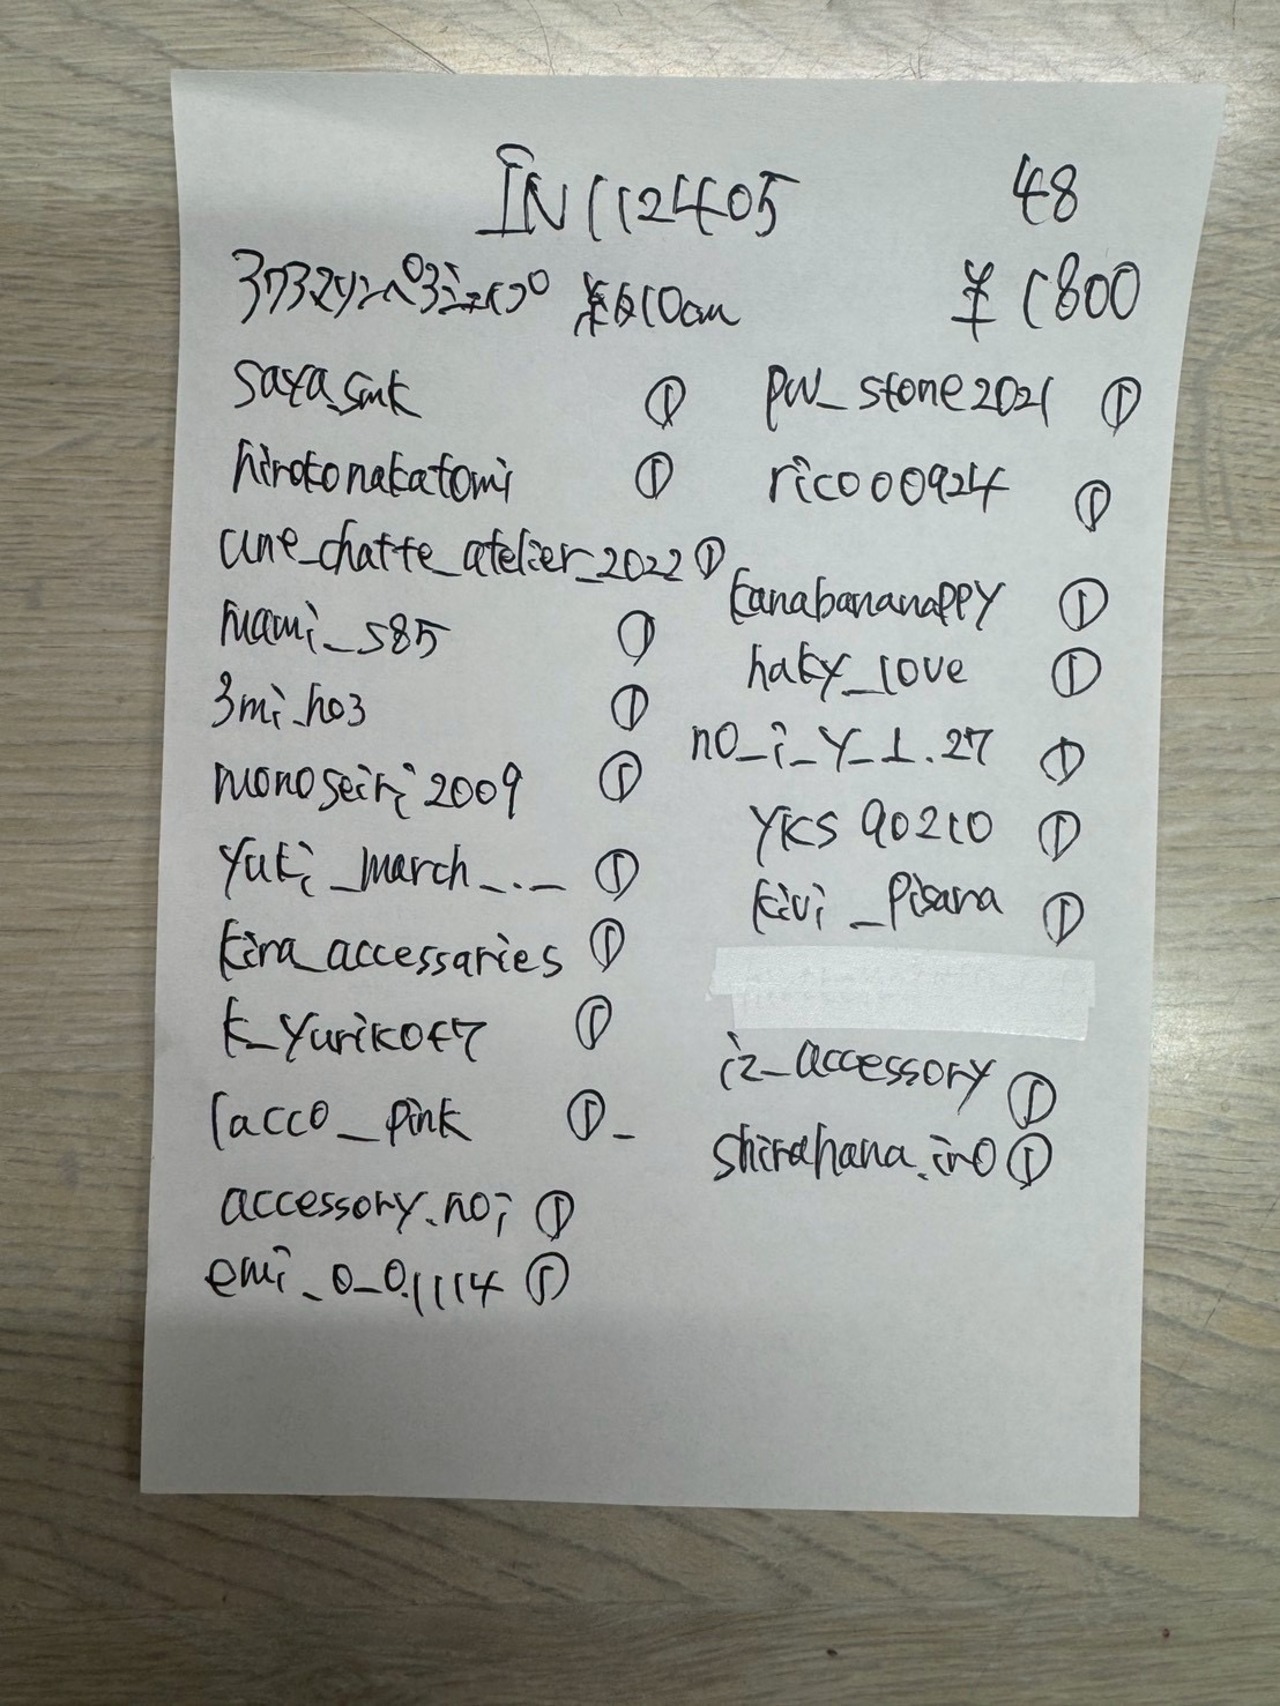 IN112405 48
約10cm ¥1800
saya_smk ①
hirokonakatomi ①
une_chatte_atelier_2022 ①
mami_s85 ①
3mi_ho3 ①
monoseiri2009 ①
yuki_march_._ ①
kira_accessaries ①
k_yuriko ①
lacco_pink ①_
accessory.noi ①
emi_0_0.1114 ①
pw_stone2021 ①
rico00924 ①
kanabananappy ①
haky_love ①
no_i_y_1.27 ①
yks90210 ①
kivi_pisara ①
iz_accessory ①
shirahana.iro ①